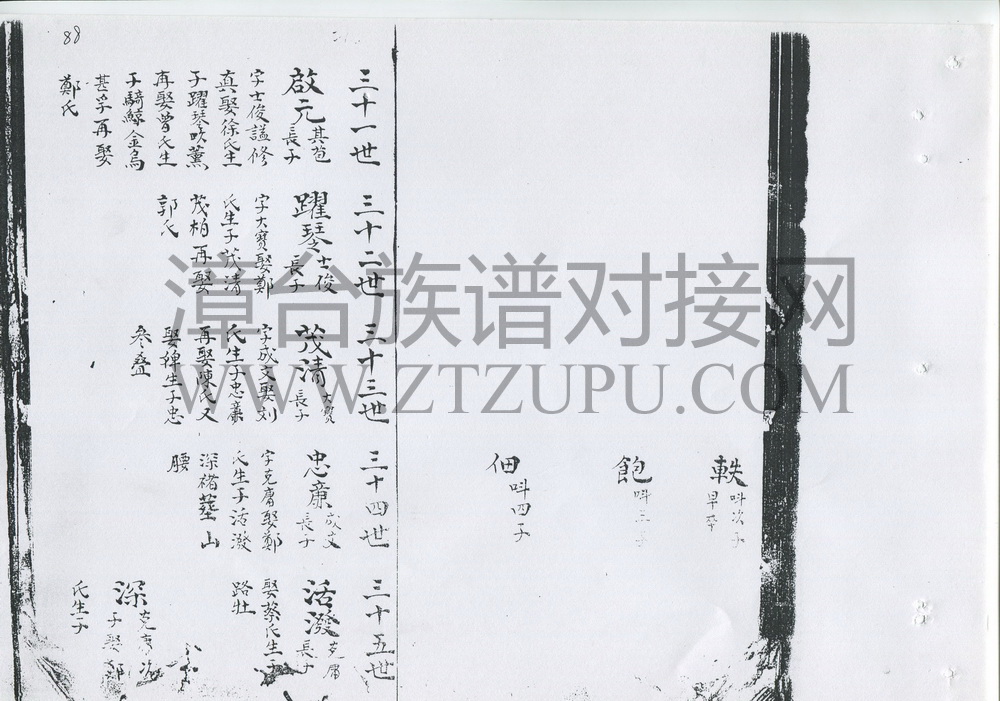 88
軼 呌次子
早卒
飽 呌三子
佃 呌四子
三十一世
啟元 其苞
長子
字士俊諡修
真娶徐氏生
子躍琴吹薰
再娶曾氏生
子騎鯨金烏
甚孚再娶
鄭氏
三十二世
躍琴 士俊
長子
字大寶娶鄭
氏生子茂清
茂柏再娶
郭氏
三十三世
茂清 大寶
長子
字成文娶刘
氏生子忠廉
再娶陳氏又
娶婢生子忠
叅叠
三十四世
忠廉 成文
長子
字克膚娶鄭
氏生子活潑
深褚葬山
腰
三十五世
活潑 克膚
長子
娶蔡氏生子
路壮
深 克膚次
子娶鄭
氏生子
漳台族谱对接网
WWW.ZTZUPU.COM